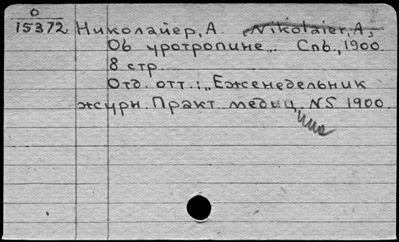 О
15372 Николайер, А. Nikolaier, A,
Об уротропине... Спб., 1900.
8 стр.
Отд. отт.: „Еженедельник
журн. Практ. медиц, N5 1900.